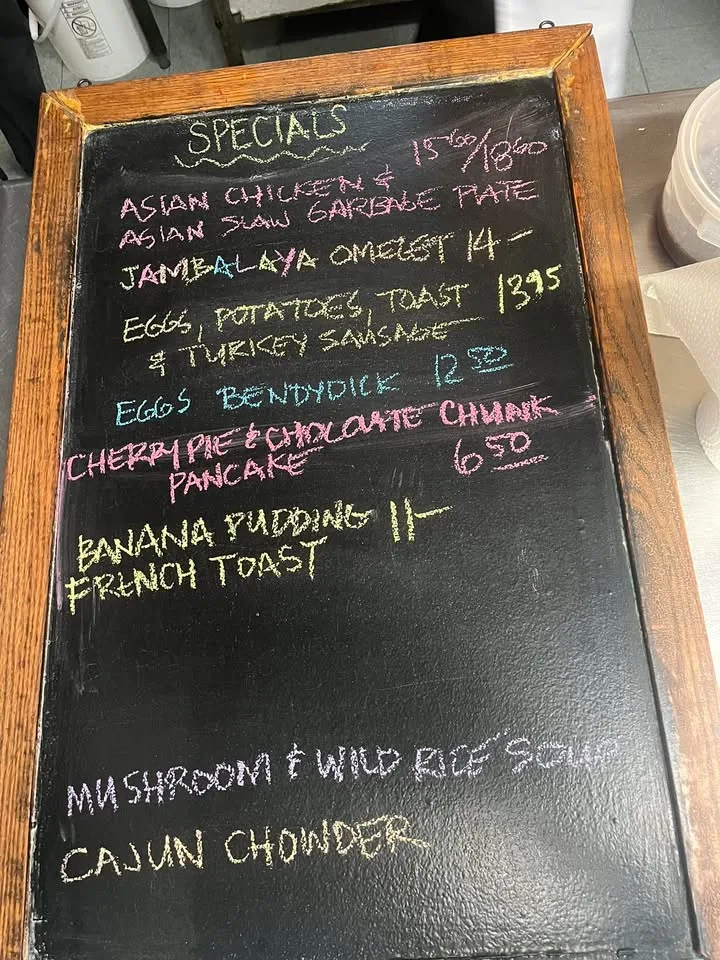 SPECIALS
15⁶⁰/18⁶⁰
ASIAN CHICKEN &
ASIAN SLAW GARBAGE PLATE
JAMBALAYA OMELET 14-
EGGS, POTATOES, TOAST 13⁹⁵
& TURKEY SAUSAGE
EGGS BENDYDICK 12⁵⁰
CHERRY PIE & CHOLOVATE CHUNK
PANCAKE 6⁵⁰
BANANA PUDDING 11-
FRENCH TOAST
MUSHROOM & WILD RICE SOUP
CAJUN CHOWDER